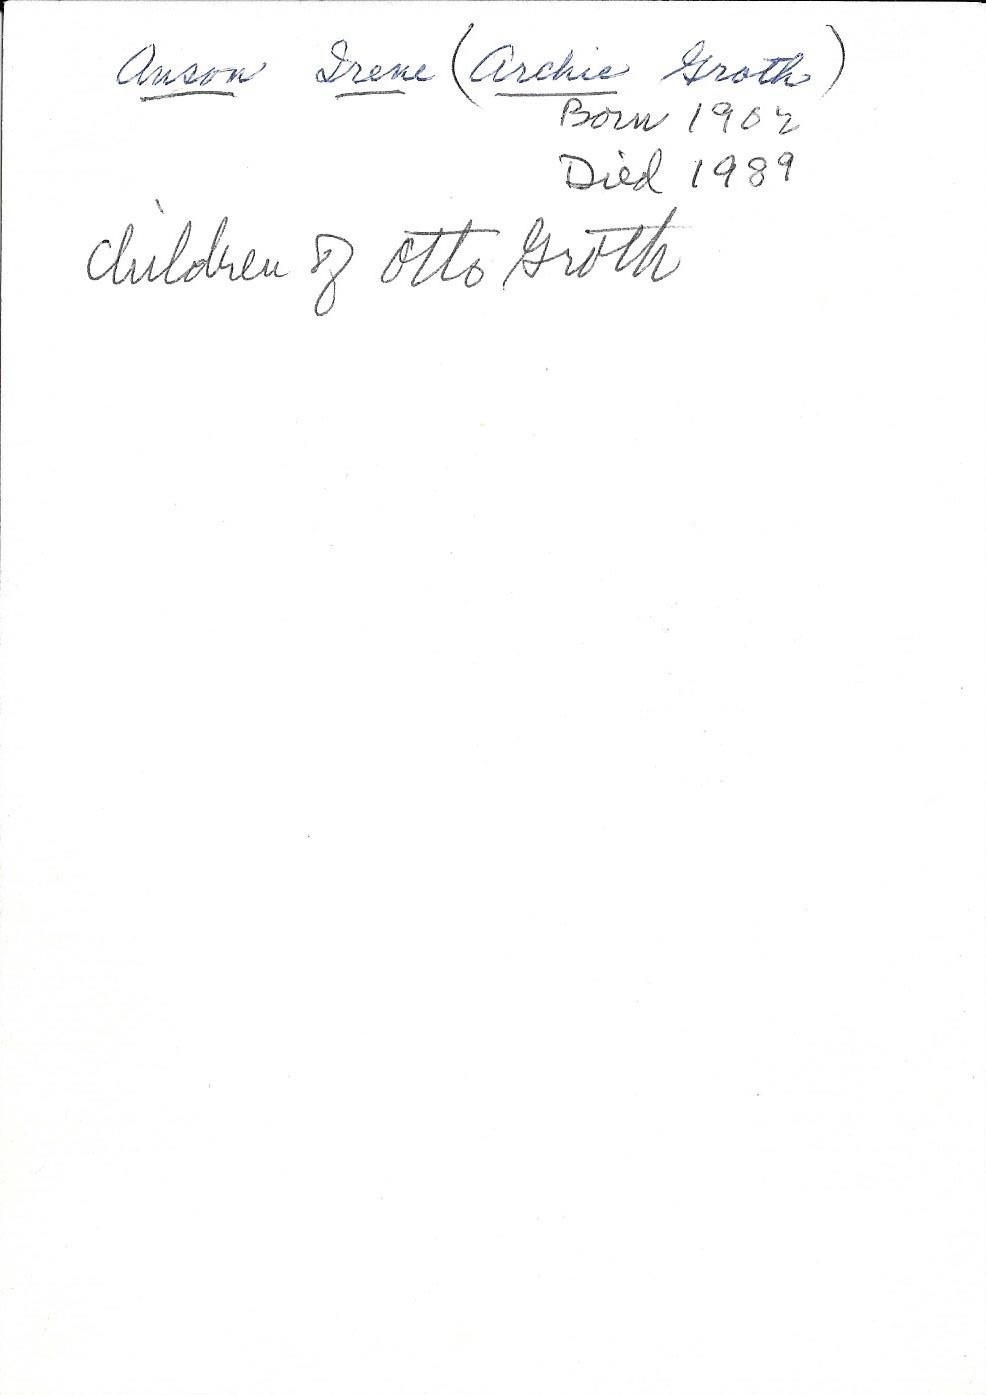 Anson Irene (Archie Groth)
Born 1902
Died 1989
Children of Otto Groth